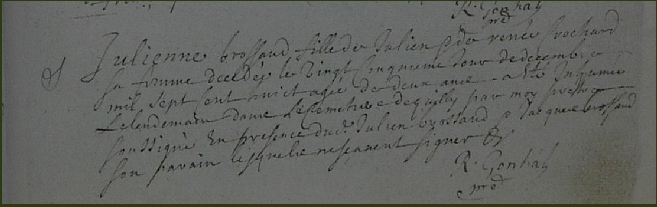 R. Gonhay
Julienne brossaud fille de Julien & de renée brochard
sa femme deceldee le vingt cinquieme jour de decembre
mil sept cent huict agée de deux ans a été inhumee
Le lendemain dans le semetiere de guilly par moy prestre
soussigné En presence dud. Julien brossaud & Jacques brossaud
son parain lesquels ne scavent signer &
R. Gonhay